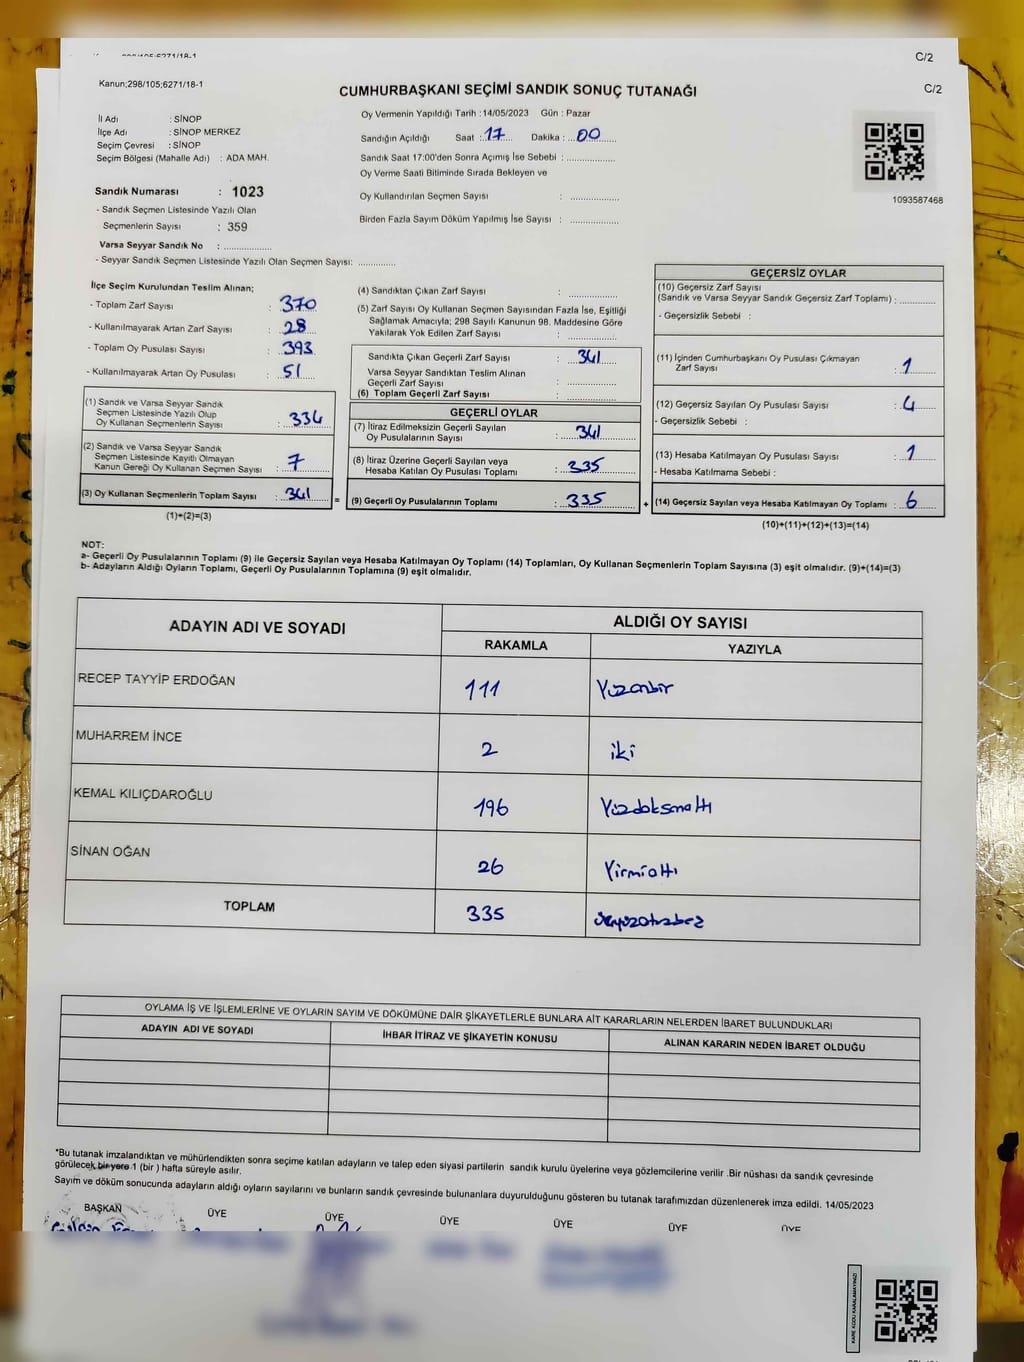 C/2
Kanun;298/105;6271/18-1
C/2
CUMHURBAŞKANI SEÇİMİ SANDIK SONUÇ TUTANAĞI
İl Adı : SİNOP
İlçe Adı : SİNOP MERKEZ
Seçim Çevresi : SİNOP
Seçim Bölgesi (Mahalle Adı) : ADA MAH.
Oy Vermenin Yapıldığı Tarih :14/05/2023 Gün : Pazar
Sandığın Açıldığı Saat : 17 Dakika : 00
Sandık Saat 17:00'den Sonra Açılmış İse Sebebi : ....................
Oy Verme Saati Bitiminde Sırada Bekleyen ve
Oy Kullandırılan Seçmen Sayısı : ....................
Birden Fazla Sayım Döküm Yapılmış İse Sayısı : ....................
1093587468
Sandık Numarası : 1023
- Sandık Seçmen Listesinde Yazılı Olan
Seçmenlerin Sayısı : 359
Varsa Seyyar Sandık No : ....................
- Seyyar Sandık Seçmen Listesinde Yazılı Olan Seçmen Sayısı: ...............
İlçe Seçim Kurulundan Teslim Alınan;
- Toplam Zarf Sayısı : 370
- Kullanılmayarak Artan Zarf Sayısı : 28
- Toplam Oy Pusulası Sayısı : 393
- Kullanılmayarak Artan Oy Pusulası : 51
(1) Sandık ve Varsa Seyyar Sandık
Seçmen Listesinde Yazılı Olup
Oy Kullanan Seçmenlerin Sayısı : 334
(2) Sandık ve Varsa Seyyar Sandık
Seçmen Listesinde Kayıtlı Olmayan
Kanun Gereği Oy Kullanan Seçmen Sayısı : 7
(3) Oy Kullanan Seçmenlerin Toplam Sayısı : 341 =
(1)+(2)=(3)
(4) Sandıktan Çıkan Zarf Sayısı : ....................
(5) Zarf Sayısı Oy Kullanan Seçmen Sayısından Fazla İse, Eşitliği
Sağlamak Amacıyla; 298 Sayılı Kanunun 98. Maddesine Göre
Yakılarak Yok Edilen Zarf Sayısı : ....................
Sandıkta Çıkan Geçerli Zarf Sayısı : 341
Varsa Seyyar Sandıktan Teslim Alınan
Geçerli Zarf Sayısı : ....................
(6) Toplam Geçerli Zarf Sayısı : ....................
GEÇERLİ OYLAR
(7) İtiraz Edilmeksizin Geçerli Sayılan
Oy Pusulalarının Sayısı : 341
(8) İtiraz Üzerine Geçerli Sayılan veya
Hesaba Katılan Oy Pusulası Toplamı : 335
(9) Geçerli Oy Pusulalarının Toplamı : 335 +
GEÇERSİZ OYLAR
(10) Geçersiz Zarf Sayısı
(Sandık ve Varsa Seyyar Sandık Geçersiz Zarf Toplamı) : ...........
- Geçersizlik Sebebi :
(11) İçinden Cumhurbaşkanı Oy Pusulası Çıkmayan
Zarf Sayısı : 1
(12) Geçersiz Sayılan Oy Pusulası Sayısı : 4
- Geçersizlik Sebebi :
(13) Hesaba Katılmayan Oy Pusulası Sayısı : 1
- Hesaba Katılmama Sebebi :
(14) Geçersiz Sayılan veya Hesaba Katılmayan Oy Toplamı : 6
(10)+(11)+(12)+(13)=(14)
NOT:
a- Geçerli Oy Pusulalarının Toplamı (9) ile Geçersiz Sayılan veya Hesaba Katılmayan Oy Toplamı (14) Toplamları, Oy Kullanan Seçmenlerin Toplam Sayısına (3) eşit olmalıdır. (9)+(14)=(3)
b- Adayların Aldığı Oyların Toplamı, Geçerli Oy Pusulalarının Toplamına (9) eşit olmalıdır.
ADAYIN ADI VE SOYADI ALDIĞI OY SAYISI
RAKAMLA YAZIYLA
RECEP TAYYİP ERDOĞAN 111 Yüzonbir
MUHARREM İNCE 2 iki
KEMAL KILIÇDAROĞLU 196 Yüzdoksanaltı
SİNAN OĞAN 26 Yirmialtı
TOPLAM 335 üçyüzotuzbeş
OYLAMA İŞ VE İŞLEMLERİNE VE OYLARIN SAYIM VE DÖKÜMÜNE DAİR ŞİKAYETLERLE BUNLARA AİT KARARLARIN NELERDEN İBARET BULUNDUKLARI
ADAYIN ADI VE SOYADI İHBAR İTİRAZ VE ŞİKAYETİN KONUSU ALINAN KARARIN NEDEN İBARET OLDUĞU
*Bu tutanak imzalandıktan ve mühürlendikten sonra seçime katılan adayların ve talep eden siyasi partilerin sandık kurulu üyelerine veya gözlemcilerine verilir .Bir nüshası da sandık çevresinde
görülecek bir yere 1 (bir ) hafta süreyle asılır.
Sayım ve döküm sonucunda adayların aldığı oyların sayılarını ve bunların sandık çevresinde bulunanlara duyurulduğunu gösteren bu tutanak tarafımızdan düzenlenerek imza edildi. 14/05/2023
BAŞKAN ÜYE ÜYE ÜYE ÜYE ÜYE ÜYE
KARE KODU KARALAMAYINIZ!